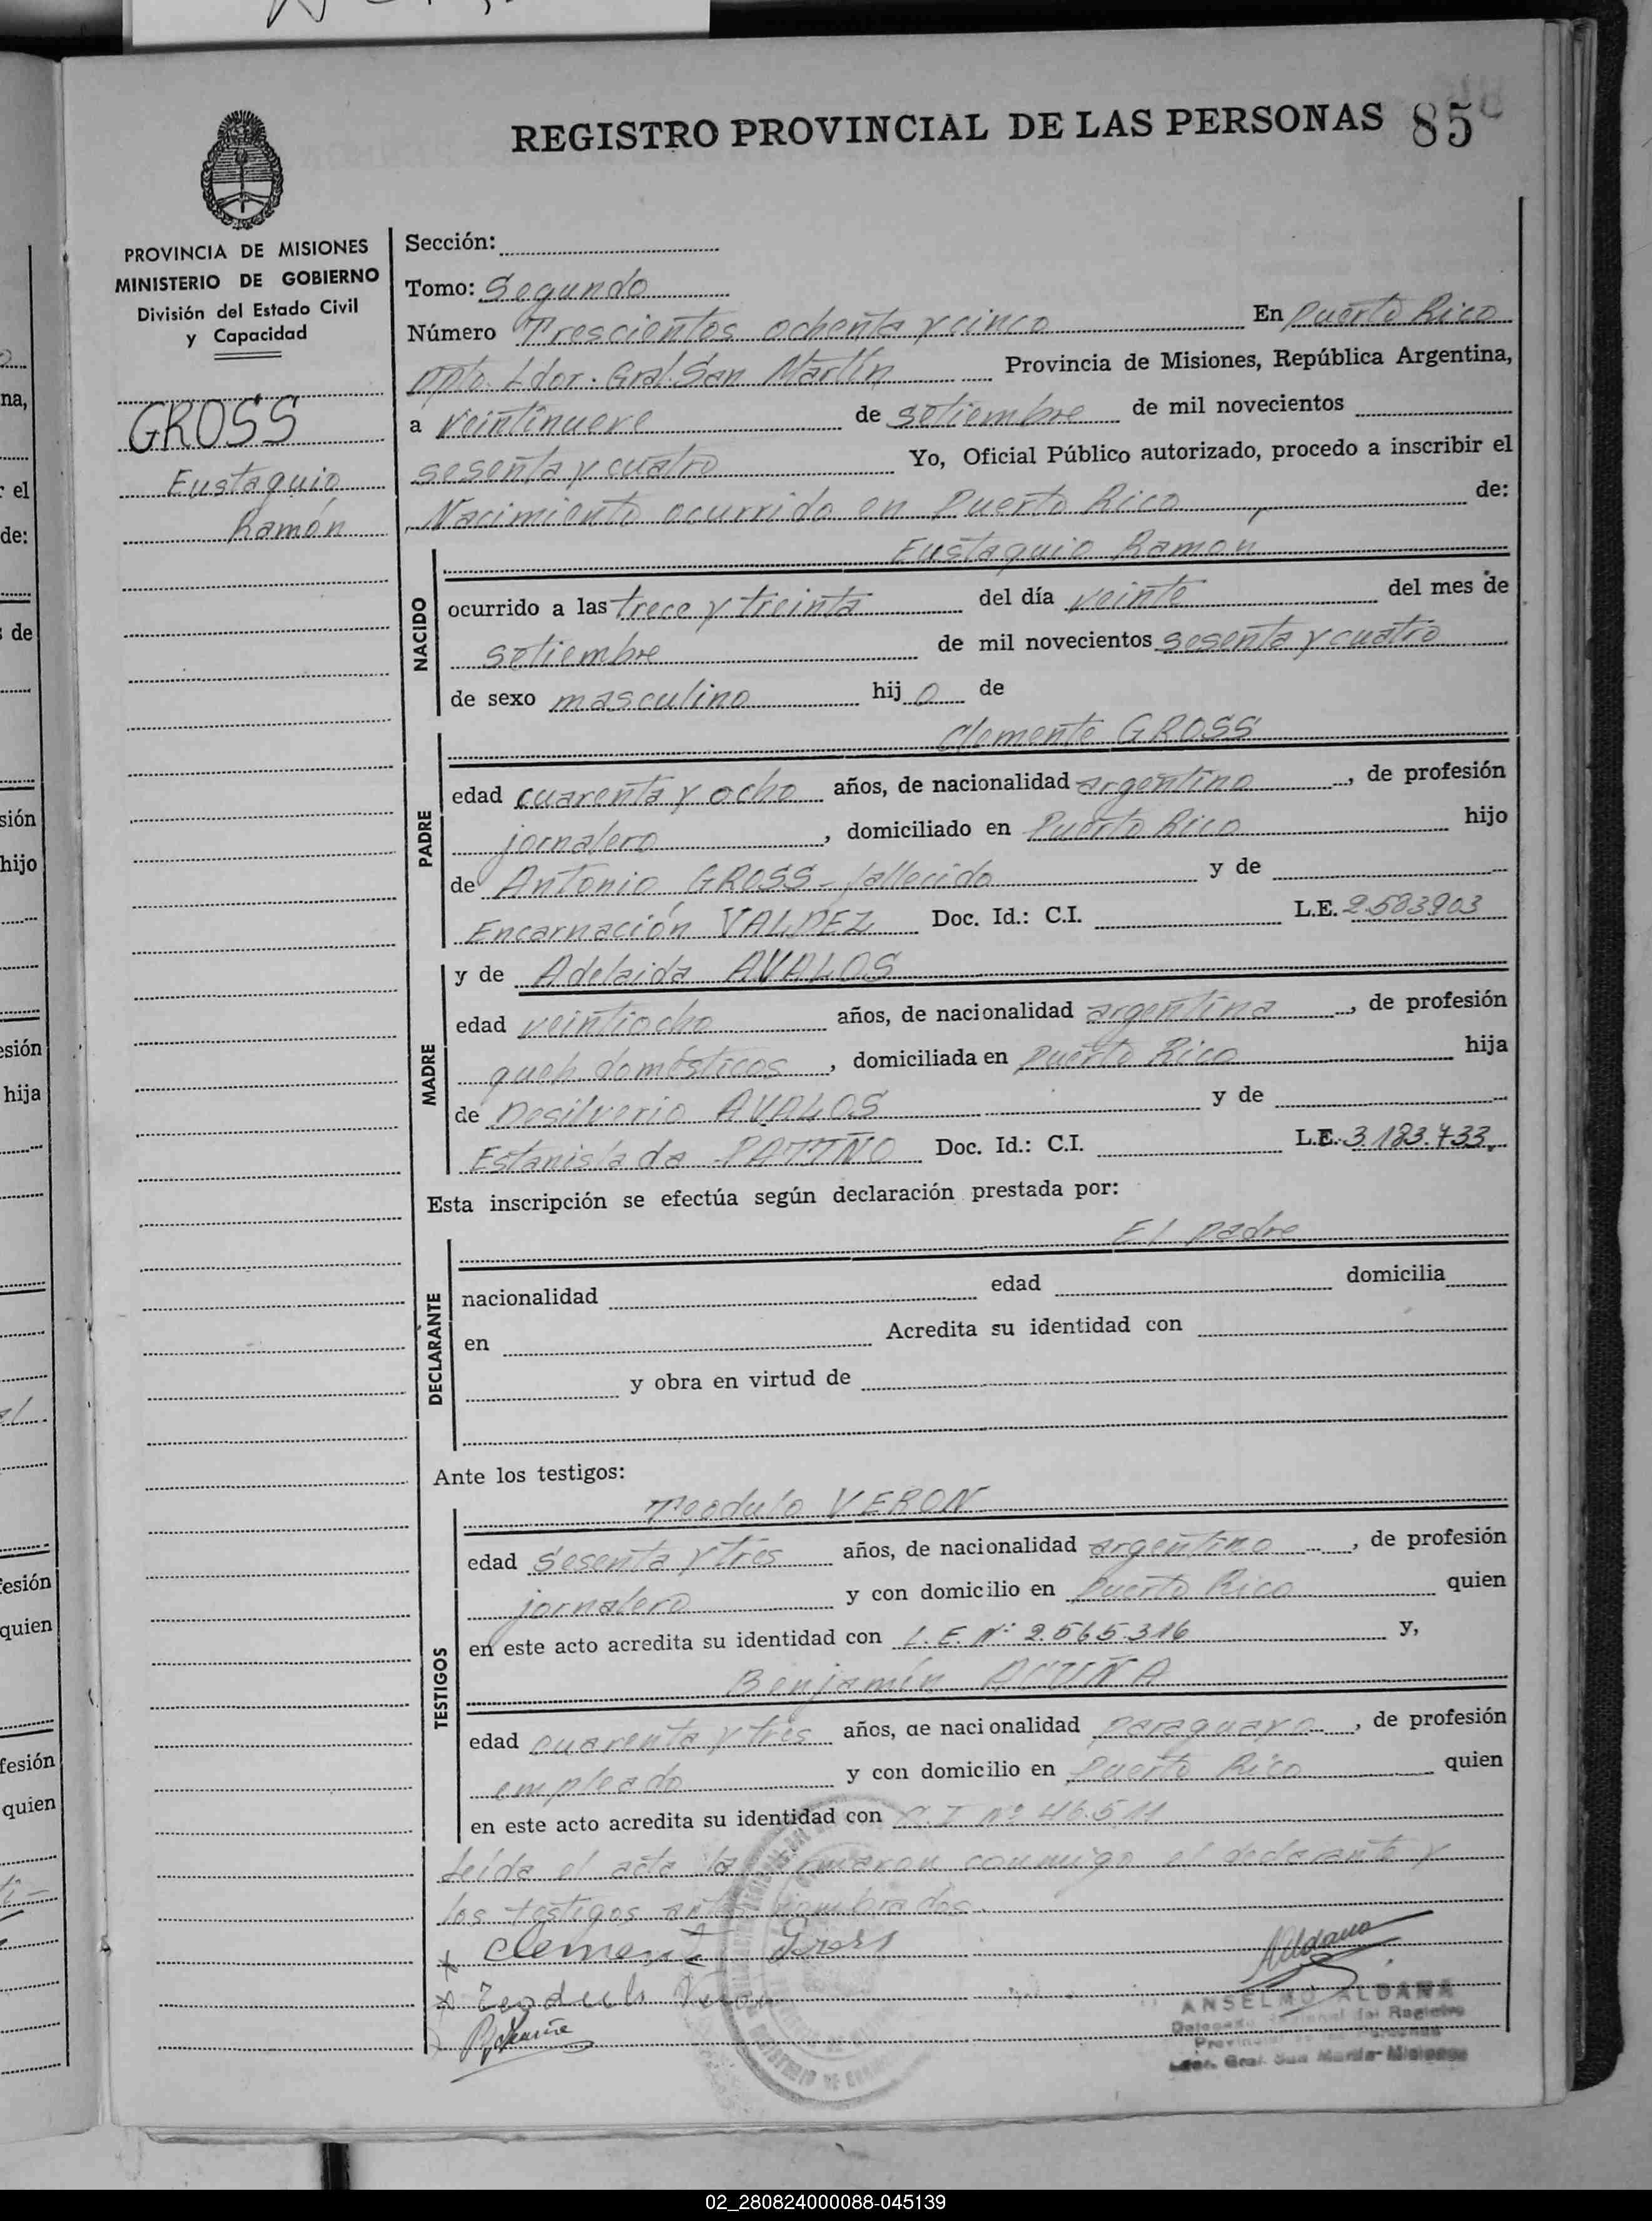 REGISTRO PROVINCIAL DE LAS PERSONAS 85
PROVINCIA DE MISIONES
MINISTERIO DE GOBIERNO
División del Estado Civil
y Capacidad
GROSS
Eustaquio
Ramón
Sección:
Tomo: Segundo
Número Trescientos ochenta y cinco En Puerto Rico
Dpto. Ldor. Gral. San Martín Provincia de Misiones, República Argentina,
a veintinueve de setiembre de mil novecientos
sesenta y cuatro Yo, Oficial Público autorizado, procedo a inscribir el
Nacimiento ocurrido en Puerto Rico, de:
Eustaquio Ramon
NACIDO
ocurrido a las trece y treinta del día veinte del mes de
setiembre de mil novecientos sesenta y cuatro
de sexo masculino hijo de
Clemente GROSS
PADRE
edad cuarenta y ocho años, de nacionalidad argentino, de profesión
jornalero, domiciliado en Puerto Rico hijo
de Antonio GROSS - fallecido y de
Encarnación VALDEZ Doc. Id.: C.I. L.E. 2.503903
MADRE
y de Adelaida AVALOS
edad veintiocho años, de nacionalidad argentina, de profesión
queh. domésticos, domiciliada en Puerto Rico hija
de Desilverio AVALOS y de
Estanislada PATIÑO Doc. Id.: C.I. L.E. 3.183.733,
Esta inscripción se efectúa según declaración prestada por:
El padre
DECLARANTE
nacionalidad edad domicilia
en Acredita su identidad con
y obra en virtud de
Ante los testigos:
Teodulo VERON
TESTIGOS
edad sesenta y tres años, de nacionalidad argentino, de profesión
jornalero y con domicilio en Puerto Rico quien
en este acto acredita su identidad con L.E. Nº 2.565.316 y,
Benjamín ACUÑA
edad cuarenta y tres años, de nacionalidad paraguayo, de profesión
empleado y con domicilio en Puerto Rico quien
en este acto acredita su identidad con C.I Nº 46.511
Leída el acta la firmaron conmigo el declarante y
los testigos antes nombrados.
x Clemente Gross
x Teodulo Veron
ANSELMO ALDANA
Delegado del Registro
Provincial de las Personas
Ldor. Gral. San Martín - Misiones
na,
r el
de:
s de
sión
hijo
esión
hija
fesión
quien
fesión
quien
02_280824000088-045139